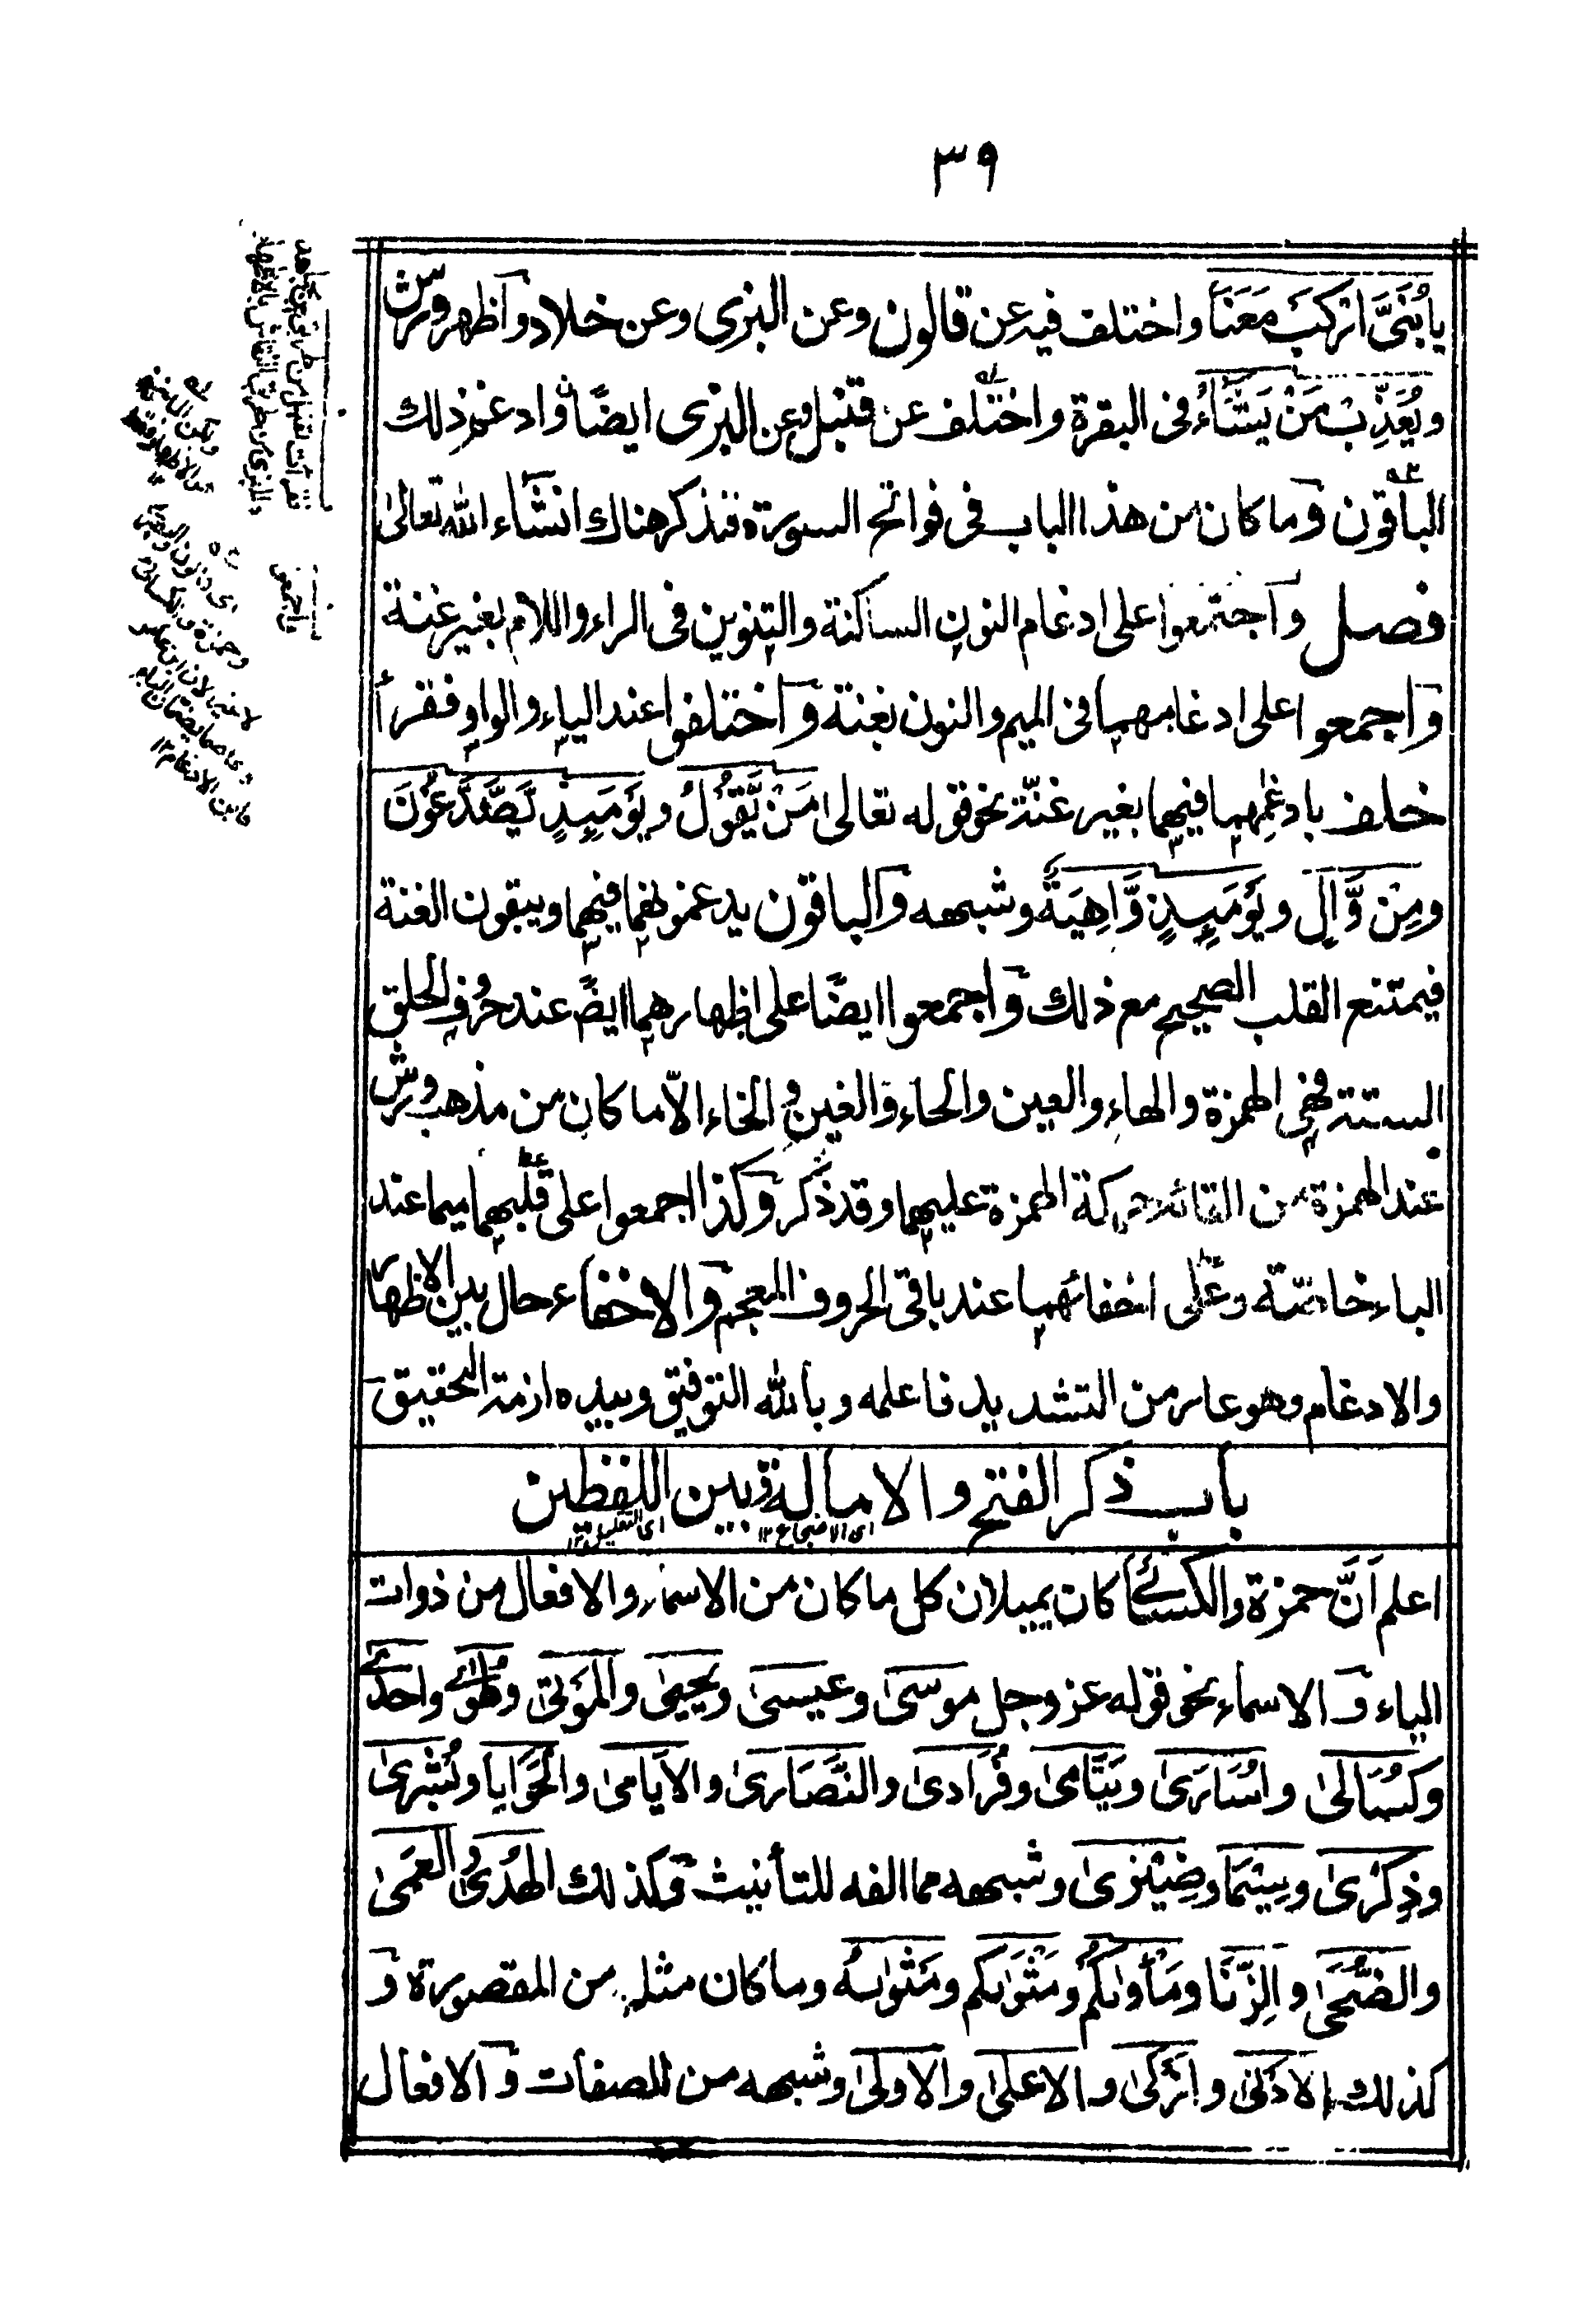 ٣٩
يٰبُنَيَّ ارْكَبْ مَعَنَا واختلف فيه عن قالون وعن البزى وعن خلاد واظهر ورش
ويُعَذِّبْ مَنْ يَشَاءُ فى البقرة واختلف عن قنبل وعن البزى ايضًا وادغم ذلك
الباقون وما كان من هذا الباب فى فواتح السورة فنذكر هناك انشاء الله تعالىٰ
فصل واجتمعوا على ادغام النون الساكنة والتنوين فى الراء واللام بغير غنة
واجمعوا على ادغامهما فى الميم والنون بغنة واختلفوا عند الياء والواو فقرأ
خلف بادغامهما فيهما بغير غنّة نحو قوله تعالى مَنْ يَّقُوْلُ ويَوْمَىِٕذٍ يَّصَّدَّعُوْنَ
ومِنْ وَّالٍ ويَوْمَىِٕذٍ وَّاهِيَةٌ وشبهه والباقون يدغمونهما فيهما ويبقون الغنة
فيمتنع القلب الصحيح مع ذلك واجمعوا ايضًا على اظهارهما ايضً عند حروف الحلق
الستة فهى الهمزة والهاء والعين والحاء والغين والخاء الاّ ما كان من مذهب ورش
عند الهمزة من القائه حركة الهمزة عليهما وقد ذكر وكذا اجمعوا على قلبهما ميما عند
الباء خاصّة وعلى اخفائهما عند باقى الحروف المعجم والاخفاء حال بين الاظهار
والادغام وهو عار من التشديد فاعلمه وبالله التوفيق وبيده ازمة التحقيق
باب ذكر الفتح والامالة وبين اللفظين
اى الاضجاع ١٢ اى التقليل ١٢
اعلم اَنَّ حمزة والكسائى كان يميلان كل ما كان من الاسماء والافعال من ذوات
الياء والاسماء نحو قوله عز وجل موسىٰ وعيسىٰ ويحيىٰ والمَوْتىٰ وطُوٰى واحدى
وكُسَالىٰ واُسَارَىٰ ويَتَامىٰ وفُرَادىٰ والنَّصَارىٰ والاَيَامىٰ والحَوَايا وبُشْرىٰ
وذِكْرىٰ وسِيْمَا وضِيْزىٰ وشبهه مما الفه للتأنيث وكذلك الهُدىٰ والعَمىٰ
والضُّحىٰ والزِّنَا ومَأْوٰىكُمْ ومَثْوٰىكم ومَثْوٰىهُ وما كان مثله من المقصورة و
كذلك الادْنىٰ وازْكىٰ والاعلىٰ والاولىٰ وشبهه من الصفات والافعال